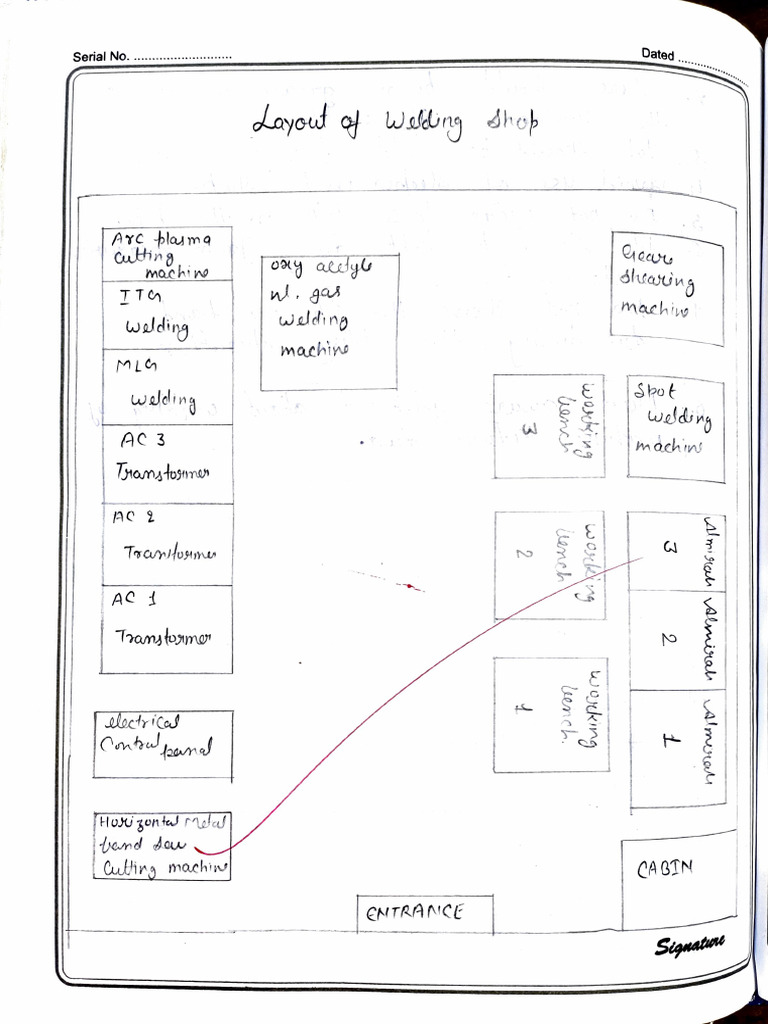 Serial No. ............................
Dated ....................
Layout of Welding Shop
Arc plasma
Cutting
machine
ITG
Welding
MLG
Welding
AC 3
Transformer
AC 2
Transformer
AC 1
Transformer
electrical
Control panal
Horizontal metal
band saw
Cutting machine
oxy acetyle
nl. gas
welding
machine
Geare
Shearing
machine
Spot
welding
machine
working
bench
3
working
bench
2
working
bench.
1
Almirah
3
Almirah
2
Almirah
1
CABIN
ENTRANCE
Signature